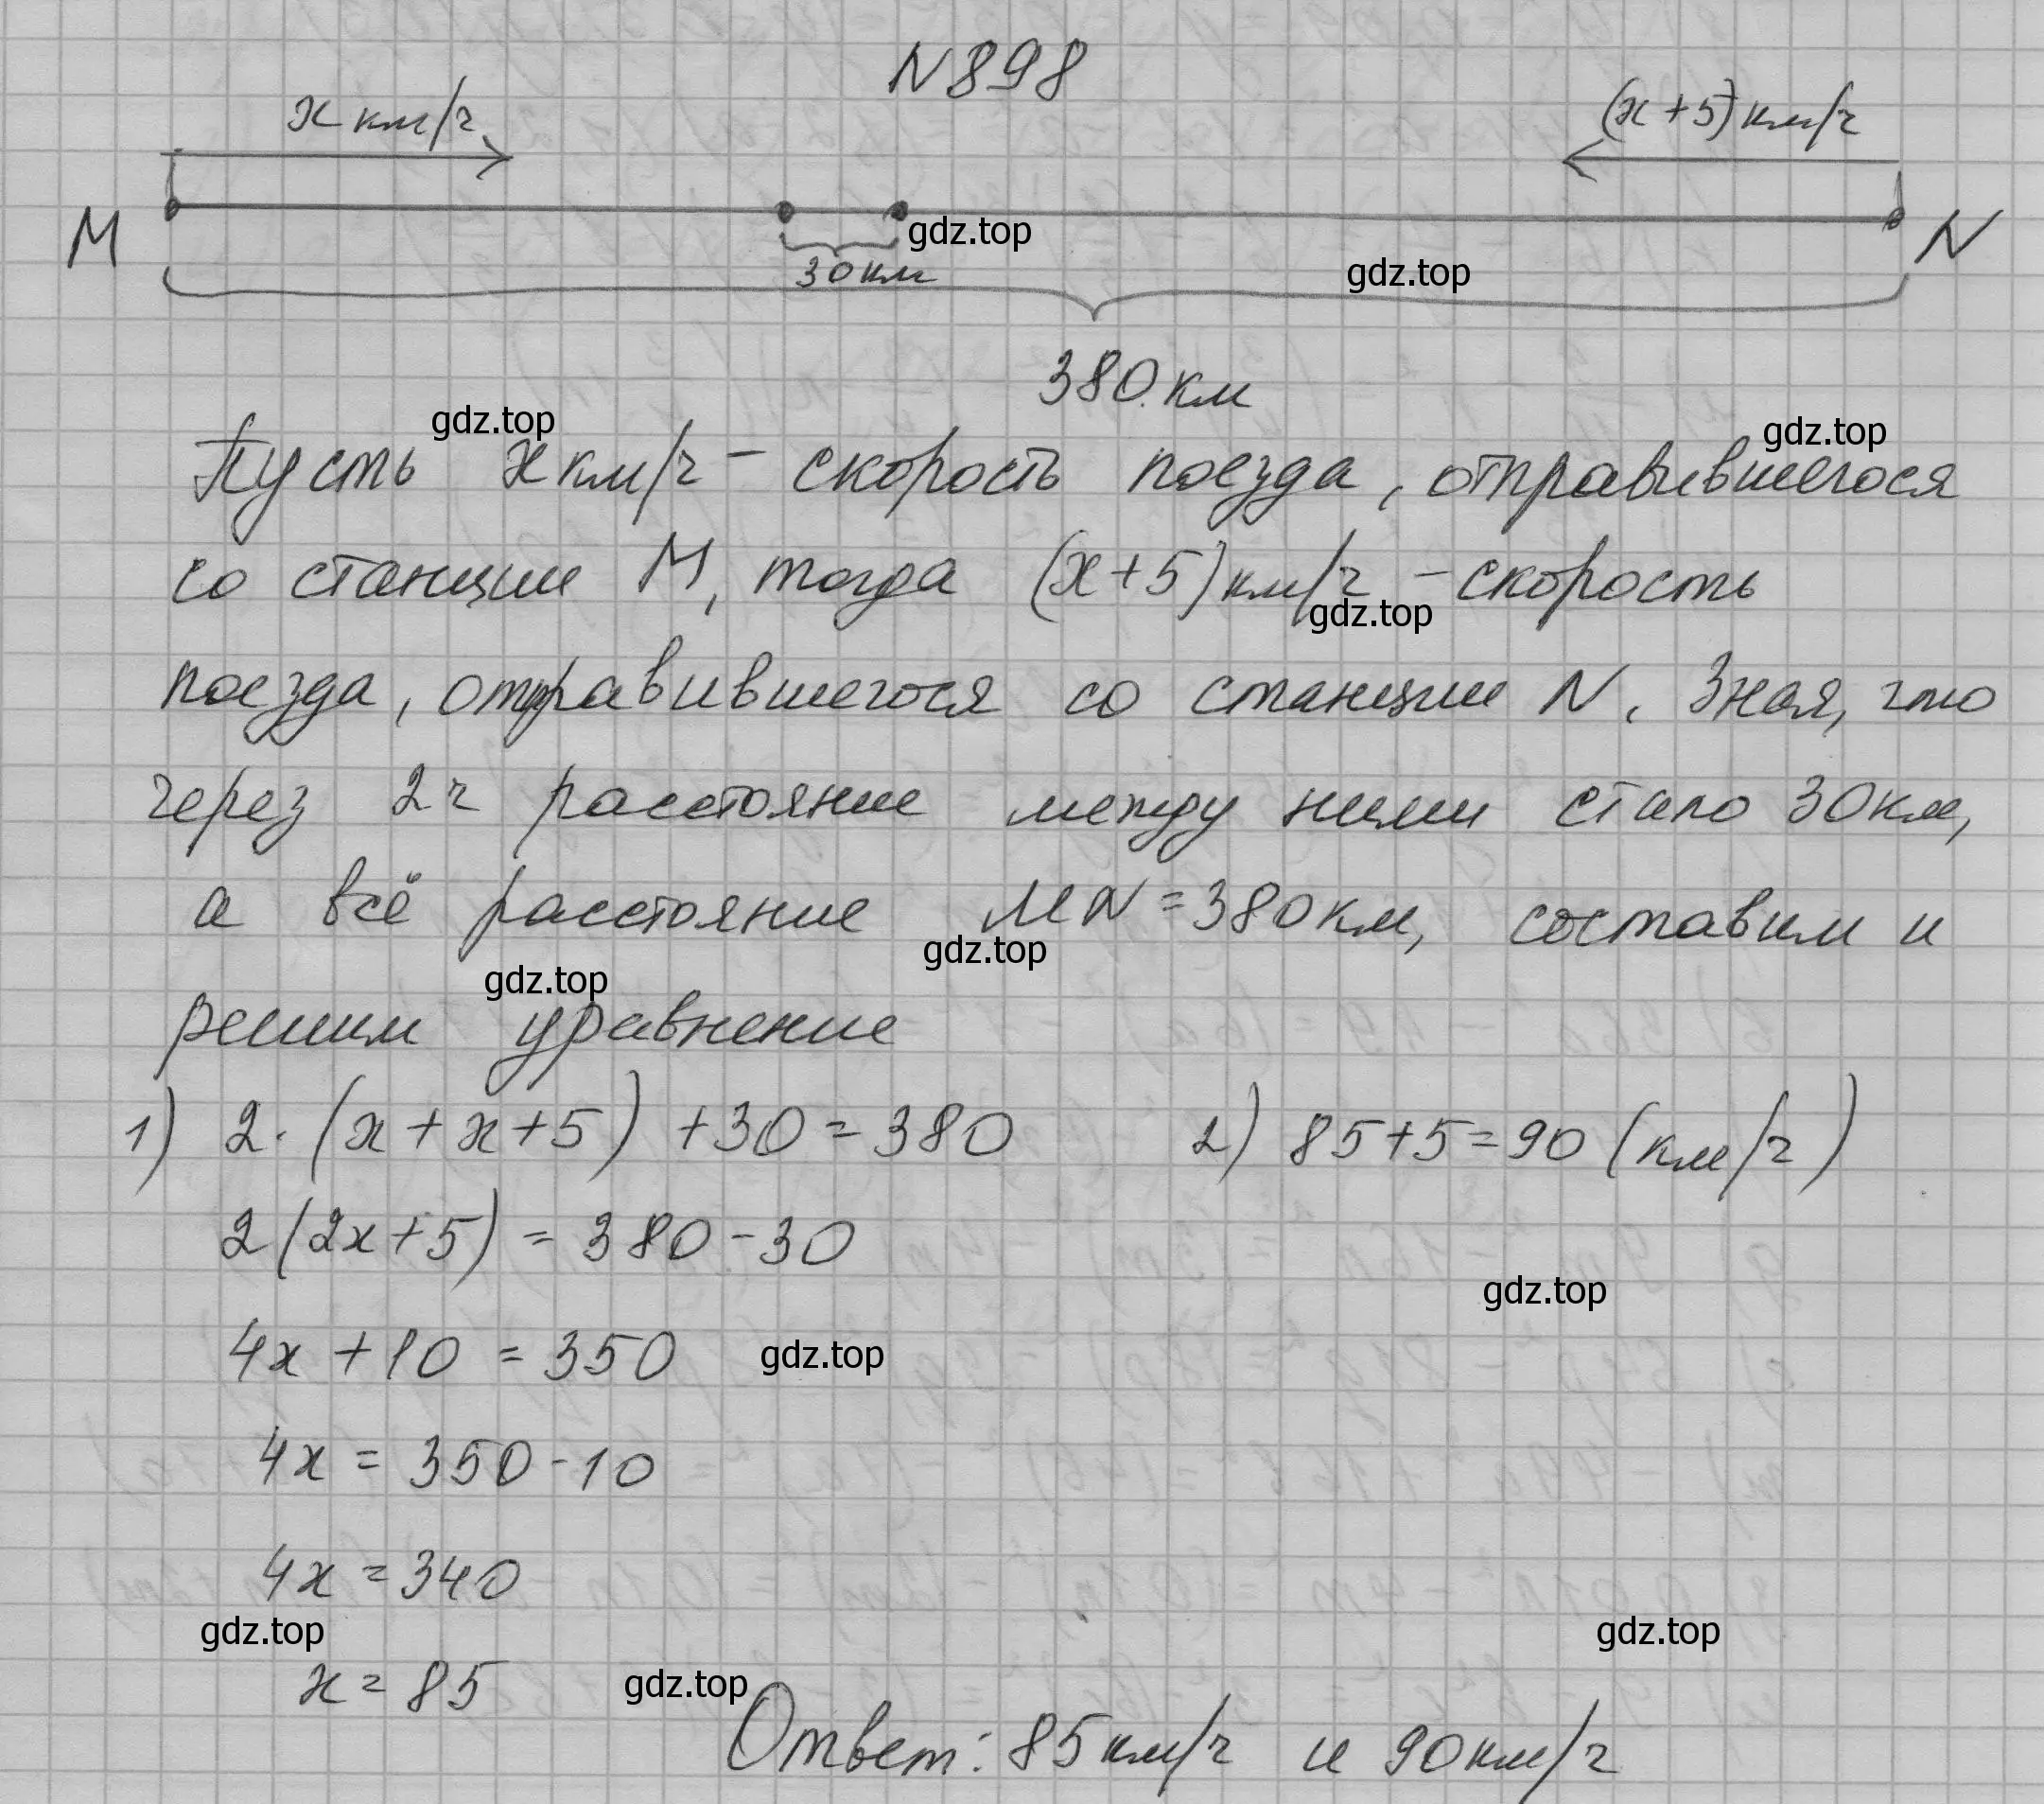 N898
x км/ч
(x+5) км/ч
M
gdz.top
N
30 км
gdz.top
380 км
gdz.top
gdz.top
Пусть x км/ч - скорость поезда, отправившегося
со станции M, тогда (x+5) км/ч - скорость
gdz.top
поезда, отправившегося со станции N. Зная, что
через 2ч расстояние между ними стало 30км,
а всё расстояние MN = 380 км, составим и
gdz.top
gdz.top
решим уравнение
1) 2·(x+x+5)+30=380
2) 85+5=90 (км/ч)
2(2x+5)=380-30
gdz.top
4x+10=350
gdz.top
4x=350-10
4x=340
gdz.top
gdz.top
x=85
gdz.top
Ответ: 85 км/ч и 90 км/ч